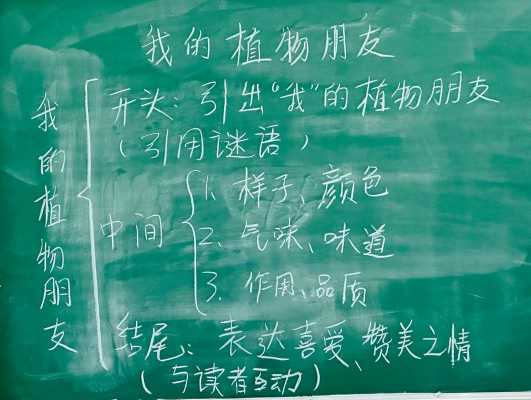 我的植物朋友
我的植物朋友
开头：引出“我”的植物朋友
（引用谜语）
中间
1. 样子、颜色
2. 气味、味道
3. 作用、品质
结尾：表达喜爱、赞美之情
（与读者互动）